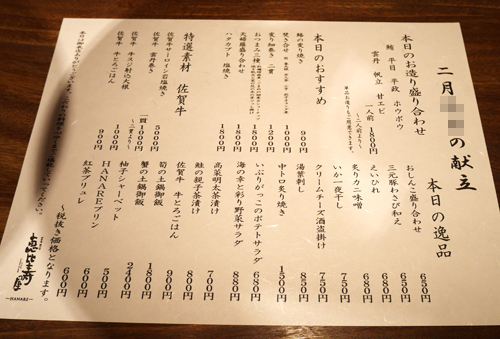 二月 の献立
本日のお造り盛り合わせ
鮪 平目 平政 ホウボウ
雲丹 帆立 甘エビ
一人前 1800円
~二人前より~
単品お造りもご用意できます。
本日のおすすめ
鰆の炙り焼き 900円
焚き合せ 1000円
炙り知巻き 二貫 1200円
おつまみ三種 1800円
天婦羅盛り合わせ 1800円
ハタカブト 塩焼き 1800円
特選素材 佐賀牛
佐賀牛サーロイン岩塩焼き 5000円
佐賀牛 雲丹巻き 一貫 1000円
~二貫より~
佐賀牛 牛スジ射込大根 1000円
佐賀牛 牛とろごはん 900円
本日の逸品
おしんこ盛り合わせ 650円
三元豚わさび和え 650円
えいひれ 680円
炙りカニ味噌 680円
いか一夜干し 750円
クリームチーズ酒盗掛け 750円
湯葉刺し 850円
中トロ炙り焼き 1500円
いぶりがっこのポテトサラダ 680円
海の幸と彩り野菜サラダ 880円
高菜明太茶漬け 700円
鮭の親子茶漬け 800円
佐賀牛 牛とろごはん 900円
筍の土鍋御飯 1800円
蟹の土鍋御飯 2400円
柚子シャーベット 400円
HANAREプリン 500円
紅茶ブリュレ 600円
~税抜き価格となります。
恵比寿屋
—HANARE—